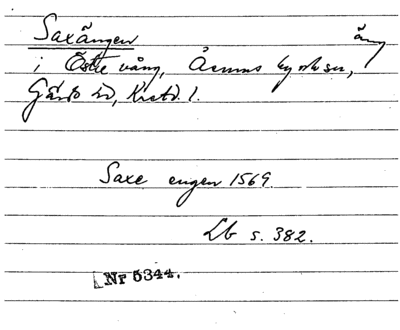 Saxängen äng
i Östre vång, Åsums by o sn,
Gärds hd, Krstd. l.
Saxe engen 1569.
Lb s. 382.
Nr 5344.